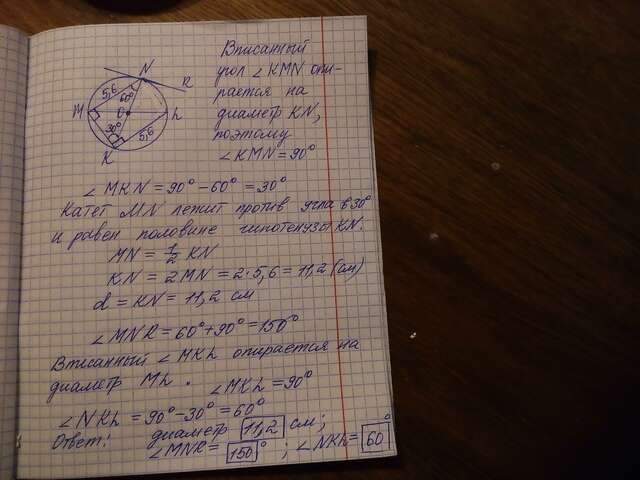 N
R
5,6
60°
M
O
L
30°
5,6
K
Вписанный
угол ∠KMN опи-
рается на
диаметр KN,
поэтому
∠KMN = 90°
∠MKN = 90° - 60° = 30°
Катет MN лежит против угла в 30°
и равен половине гипотенузы KN.
MN = 1/2 KN
KN = 2MN = 2·5,6 = 11,2 (см)
d = KN = 11,2 см
∠MNR = 60° + 90° = 150°
Вписанный ∠MKL опирается на
диаметр ML. ∠MKL = 90°
∠NKL = 90° - 30° = 60°
Ответ: диаметр 11,2 см;
∠MNR = 150°; ∠NKL = 60°